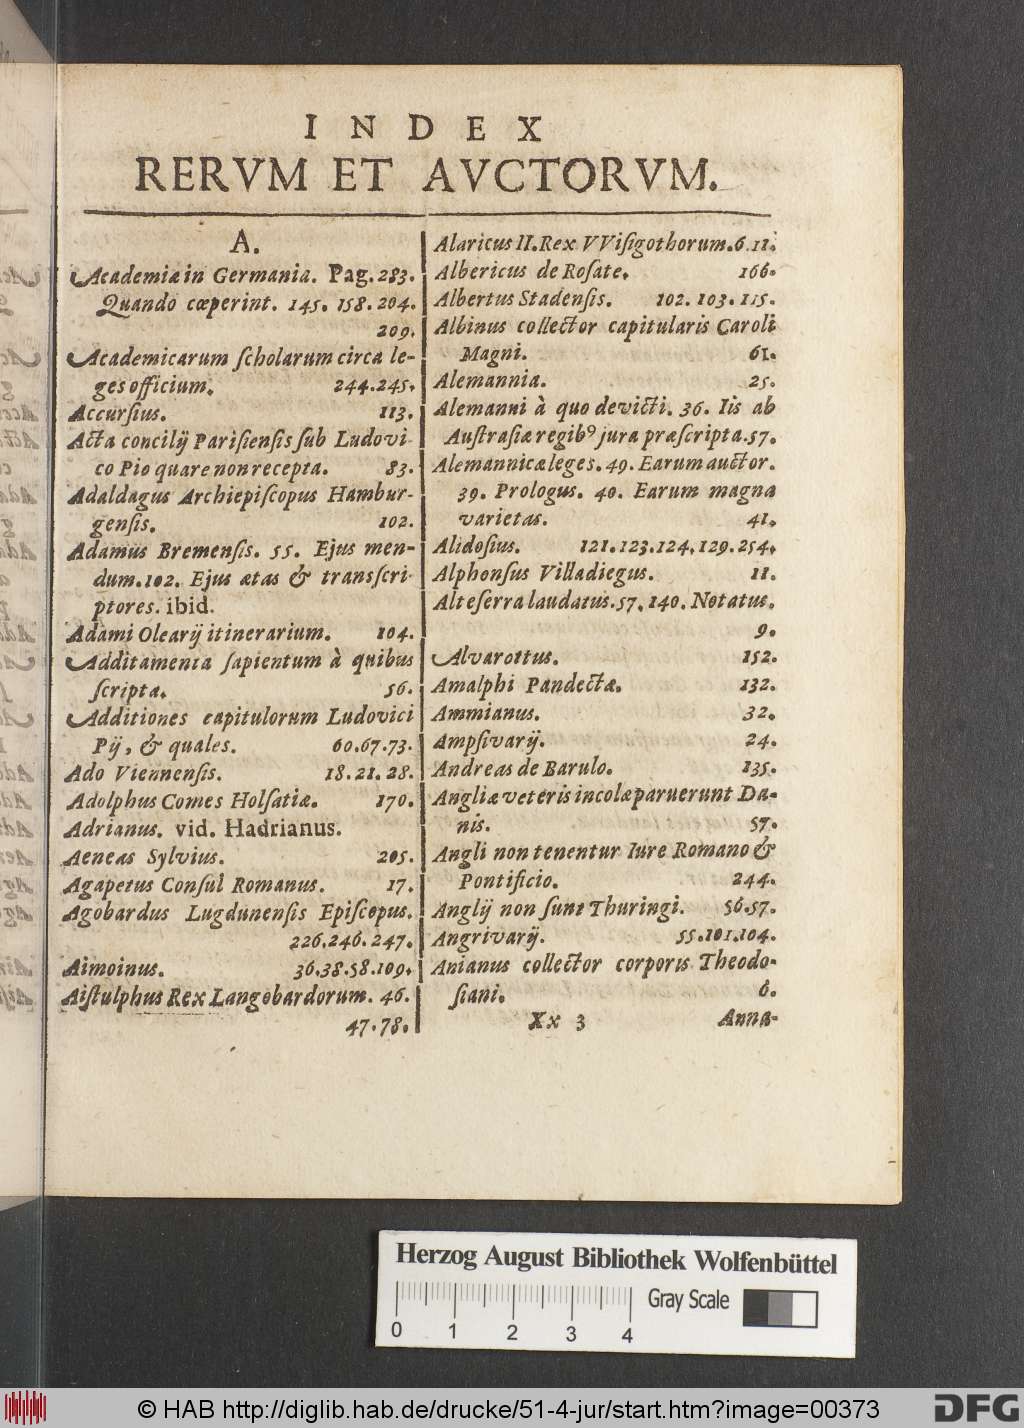 INDEX
RERVM ET AVCTORVM.
A.
Academiæ in Germania. Pag. 283.
Quando cœperint. 145. 158. 204.
209.
Academicarum ſcholarum circa le-
ges officium. 244. 245.
Accurſius. 113.
Acta concilij Pariſienſis ſub Ludovi
co Pio quare non recepta. 83.
Adaldagus Archiepiſcopus Hambur-
genſis. 102.
Adamus Bremenſis. 55. Ejus men-
dum. 102. Ejus ætas & tranſcri-
ptores. ibid.
Adami Olearij itinerarium. 104.
Additamenta ſapientum à quibus
ſcripta. 56.
Additiones capitulorum Ludovici
Pij, & quales. 60. 67. 73.
Ado Viennenſis. 18. 21. 28.
Adolphus Comes Holſatiæ. 170.
Adrianus. vid. Hadrianus.
Aeneas Sylvius. 205.
Agapetus Conſul Romanus. 17.
Agobardus Lugdunenſis Epiſcopus.
226. 246. 247.
Aimoinus. 36. 38. 58. 109.
Aiſtulphus Rex Langobardorum. 46.
47. 78.
Alaricus II. Rex VViſigothorum. 6. 11.
Albericus de Roſate. 166.
Albertus Stadenſis. 102. 103. 115.
Albinus collector capitularis Caroli
Magni. 61.
Alemannia. 25.
Alemanni à quo devicti. 36. Iis ab
Auſtraſiæ regibꝰ jura præſcripta. 57.
Alemannicæ leges. 49. Earum auctor.
39. Prologus. 40. Earum magna
varietas. 41.
Alidoſius. 121. 123. 124. 129. 254.
Alphonſus Villadiegus. 11.
Alteſerra laudatus. 57. 140. Notatus.
9.
Alvarottus. 152.
Amalphi Pandectæ. 132.
Ammianus. 32.
Ampſivarij. 24.
Andreas de Barulo. 135.
Angliæ veteris incolæ paruerunt Da-
nis. 57.
Angli non tenentur Iure Romano &
Pontificio. 244.
Anglij non ſunt Thuringi. 56. 57.
Angrivarij. 55. 101. 104.
Anianus collector corporis Theodo-
ſiani. 6.
Xx 3 Anna-
Herzog August Bibliothek Wolfenbüttel
Gray Scale
0 1 2 3 4
© HAB http://diglib.hab.de/drucke/51-4-jur/start.htm?image=00373
DFG